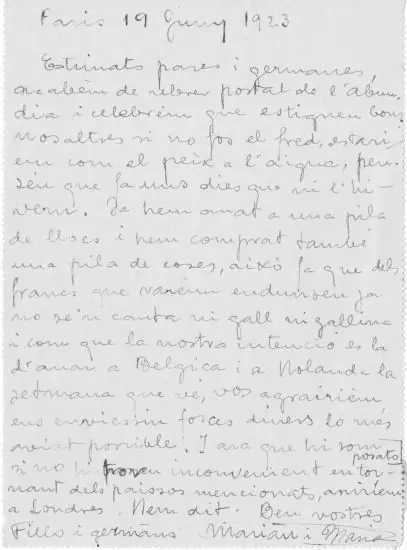 Paris 19 Juny 1923
Estimats pares i germanes,
acabém de rebrer postal de l'Abun
dia i celebrém que estigueu bons
nosaltres si no fos el fred, estari
em com el peix a l'aigua, pen
séu que fa uns dies que ni l'hi
vern. Ja hem anat a una pila
de llocs i hem comprat també
una pila de coses, aixó fa que dels
franchs que varem endurnseu ja
no se'n canta ni gall ni gallina
i com que la nostra intenció es la
d'anar a Belgica i a Holanda la
setmana que ve, vos agrairiém
ens enviessin forces diners lo més
aviat possible. I ara que hi som posats
si no hi troveu inconvenient en tor
nant dels paissos mencionats, aniriém
a Londres. Hem dit. Ben vostres
Fills i germans Marián i Maria